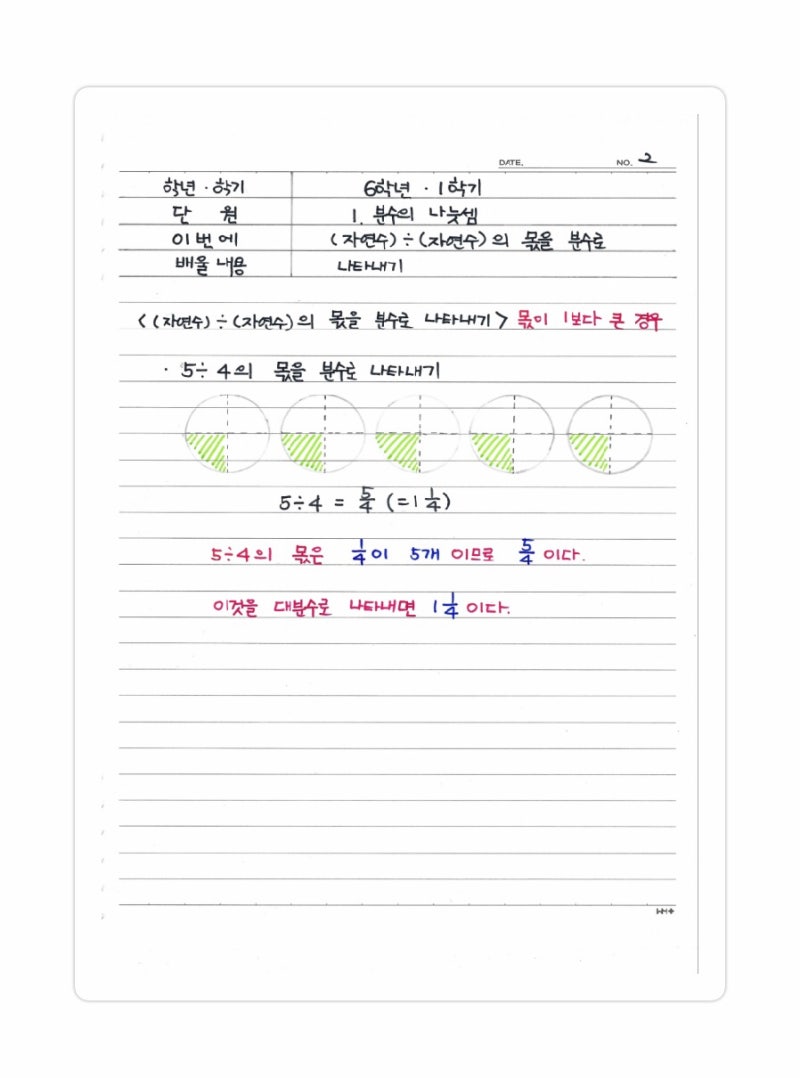 DATE. NO. 2
학년·학기 6학년 · 1학기
단 원 1. 분수의 나눗셈
이번에 (자연수)÷(자연수)의 몫을 분수로
배울 내용 나타내기
<(자연수)÷(자연수)의 몫을 분수로 나타내기> 몫이 1보다 큰 경우
· 5÷4의 몫을 분수로 나타내기
5÷4 = 5/4 (=1 1/4)
5÷4의 몫은 1/4이 5개 이므로 5/4 이다.
이것을 대분수로 나타내면 1 1/4 이다.